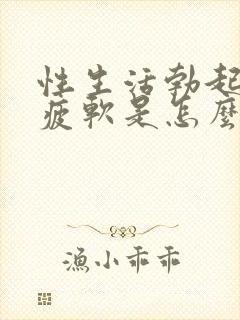 性生活勃起
疲軟是怎麼
漁小乖乖